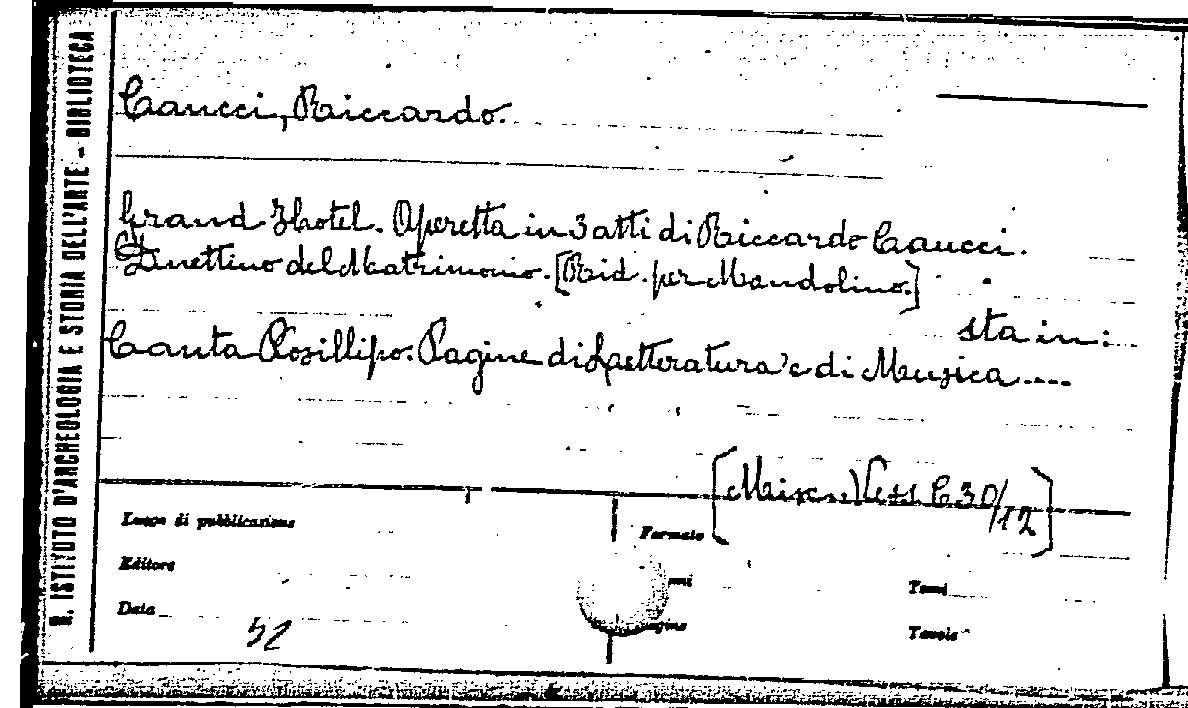 R. ISTITUTO D'ARCHEOLOGIA E STORIA DELL'ARTE - BIBLIOTECA
Caucci, Riccardo.
Grand Hotel. Operetta in 3 atti di Riccardo Caucci.
Duettino del Matrimonio. [Rid. per Mandolino.]
sta in:
Canta Posillipo. Pagine di Letteratura e di Musica....
[Misc. C 30/12]
Luogo di pubblicazione
Formato
Editore
Tomi
Data
Tavole
52